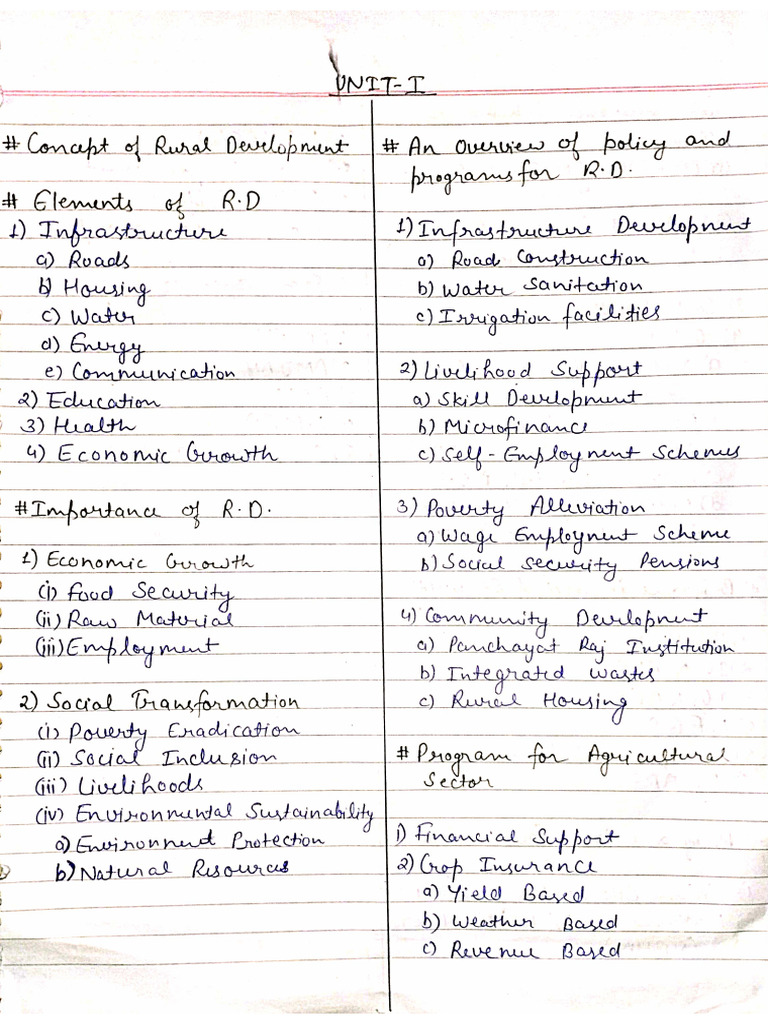 UNIT-I
# Concept of Rural Development
# Elements of R.D
1) Infrastructure
a) Roads
b) Housing
c) Water
d) Energy
e) Communication
2) Education
3) Health
4) Economic Growth
# Importance of R.D.
1) Economic Growth
(i) Food Security
(ii) Raw Material
(iii) Employment
2) Social Transformation
(i) Poverty Eradication
(ii) Social Inclusion
(iii) Livelihoods
(iv) Environmental Sustainability
a) Environment Protection
b) Natural Resources
# An Overview of policy and
programs for R.D.
1) Infrastructure Development
a) Road Construction
b) Water Sanitation
c) Irrigation facilities
2) Livelihood Support
a) Skill Development
b) Microfinance
c) Self-Employment Schemes
3) Poverty Alleviation
a) Wage Employment Scheme
b) Social Security Pensions
4) Community Development
a) Panchayat Raj Institution
b) Integrated Wastes
c) Rural Housing
# Program for Agricultural
Sector
1) Financial Support
2) Crop Insurance
a) Yield Based
b) Weather Based
c) Revenue Based